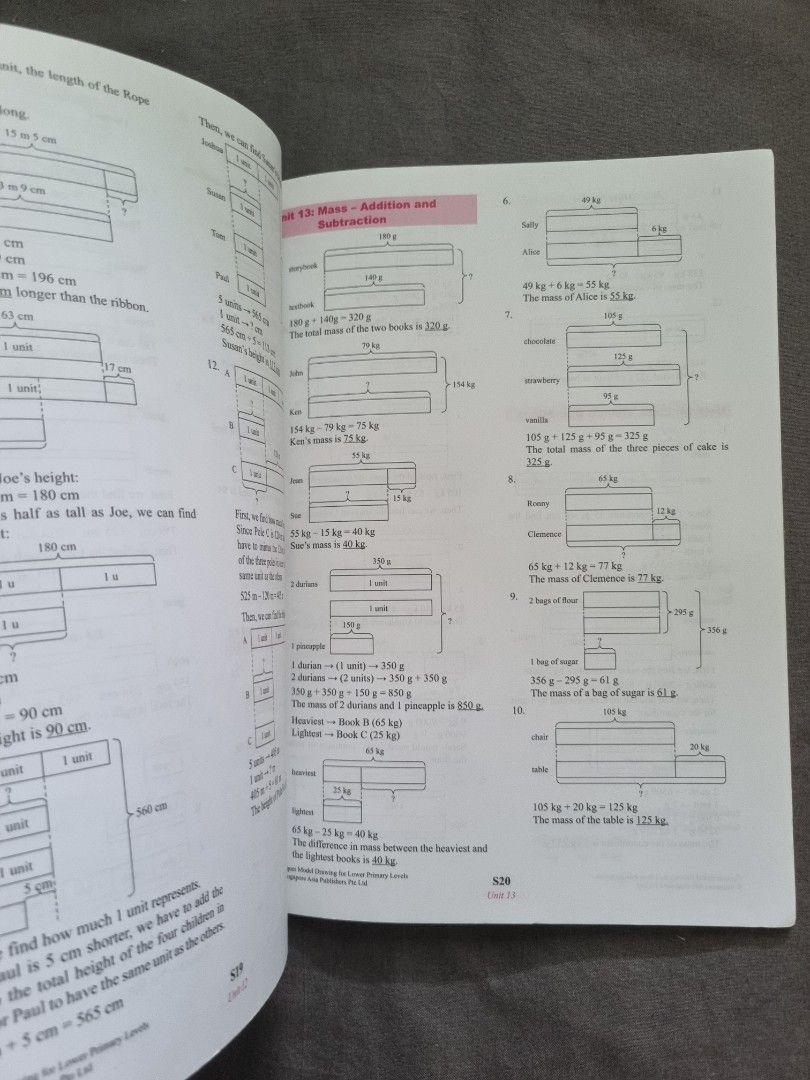 nit, the length of the Rope
long.
15 m 5 cm
m 9 cm
?
cm
cm
m = 196 cm
m longer than the ribbon.
63 cm
1 unit
17 cm
1 unit
Joe's height:
m = 180 cm
s half as tall as Joe, we can find
t:
180 cm
1 u
1 u
1 u
?
cm
= 90 cm
ight is 90 cm.
unit
1 unit
?
unit
560 cm
1 unit
5 cm
find how much 1 unit represents.
aul is 5 cm shorter, we have to add the
the total height of the four children in
r Paul to have the same unit as the others.
+ 5 cm = 565 cm
ing for Lower Primary Levels
Pte Ltd
Then, we can find
Joshua
1 unit
1 unit
?
Susan
1 unit
Tom
1 unit
Paul
1 unit
5 units → 565 cm
1 unit → ? cm
565 cm ÷ 5 =
Susan's height is
12.
A
1 unit
?
B
1 unit
C
1 unit
?
First, we find how
Since Pole C is
have to minus
of the three poles
same unit as the
525 m – 120 m =
Then, we can find
A
1 unit
?
B
1 unit
C
1 unit
5 units →
1 unit → ?
405 m ÷ 5 =
The height of
S19
Unit 12
nit 13: Mass – Addition and
Subtraction
180 g
storybook
140 g
?
textbook
180 g + 140g = 320 g
The total mass of the two books is 320 g.
79 kg
John
?
154 kg
Ken
154 kg – 79 kg = 75 kg
Ken's mass is 75 kg.
55 kg
Jean
?
15 kg
Sue
55 kg – 15 kg = 40 kg
Sue's mass is 40 kg.
350 g
2 durians
1 unit
1 unit
?
150 g
1 pineapple
1 durian → (1 unit) → 350 g
2 durians → (2 units) → 350 g + 350 g
350 g + 350 g + 150 g = 850 g
The mass of 2 durians and 1 pineapple is 850 g.
Heaviest → Book B (65 kg)
Lightest → Book C (25 kg)
65 kg
heaviest
25 kg
?
lightest
65 kg – 25 kg = 40 kg
The difference in mass between the heaviest and
the lightest books is 40 kg.
Model Drawing for Lower Primary Levels
ngapore Asia Publishers Pte Ltd
6.
49 kg
Sally
6 kg
Alice
?
49 kg + 6 kg = 55 kg
The mass of Alice is 55 kg.
7.
105 g
chocolate
125 g
strawberry
?
95 g
vanilla
105 g + 125 g + 95 g = 325 g
The total mass of the three pieces of cake is
325 g.
8.
65 kg
Ronny
12 kg
Clemence
?
65 kg + 12 kg = 77 kg
The mass of Clemence is 77 kg.
9.
2 bags of flour
295 g
356 g
?
1 bag of sugar
356 g – 295 g = 61 g
The mass of a bag of sugar is 61 g.
10.
105 kg
chair
20 kg
table
?
105 kg + 20 kg = 125 kg
The mass of the table is 125 kg.
S20
Unit 13